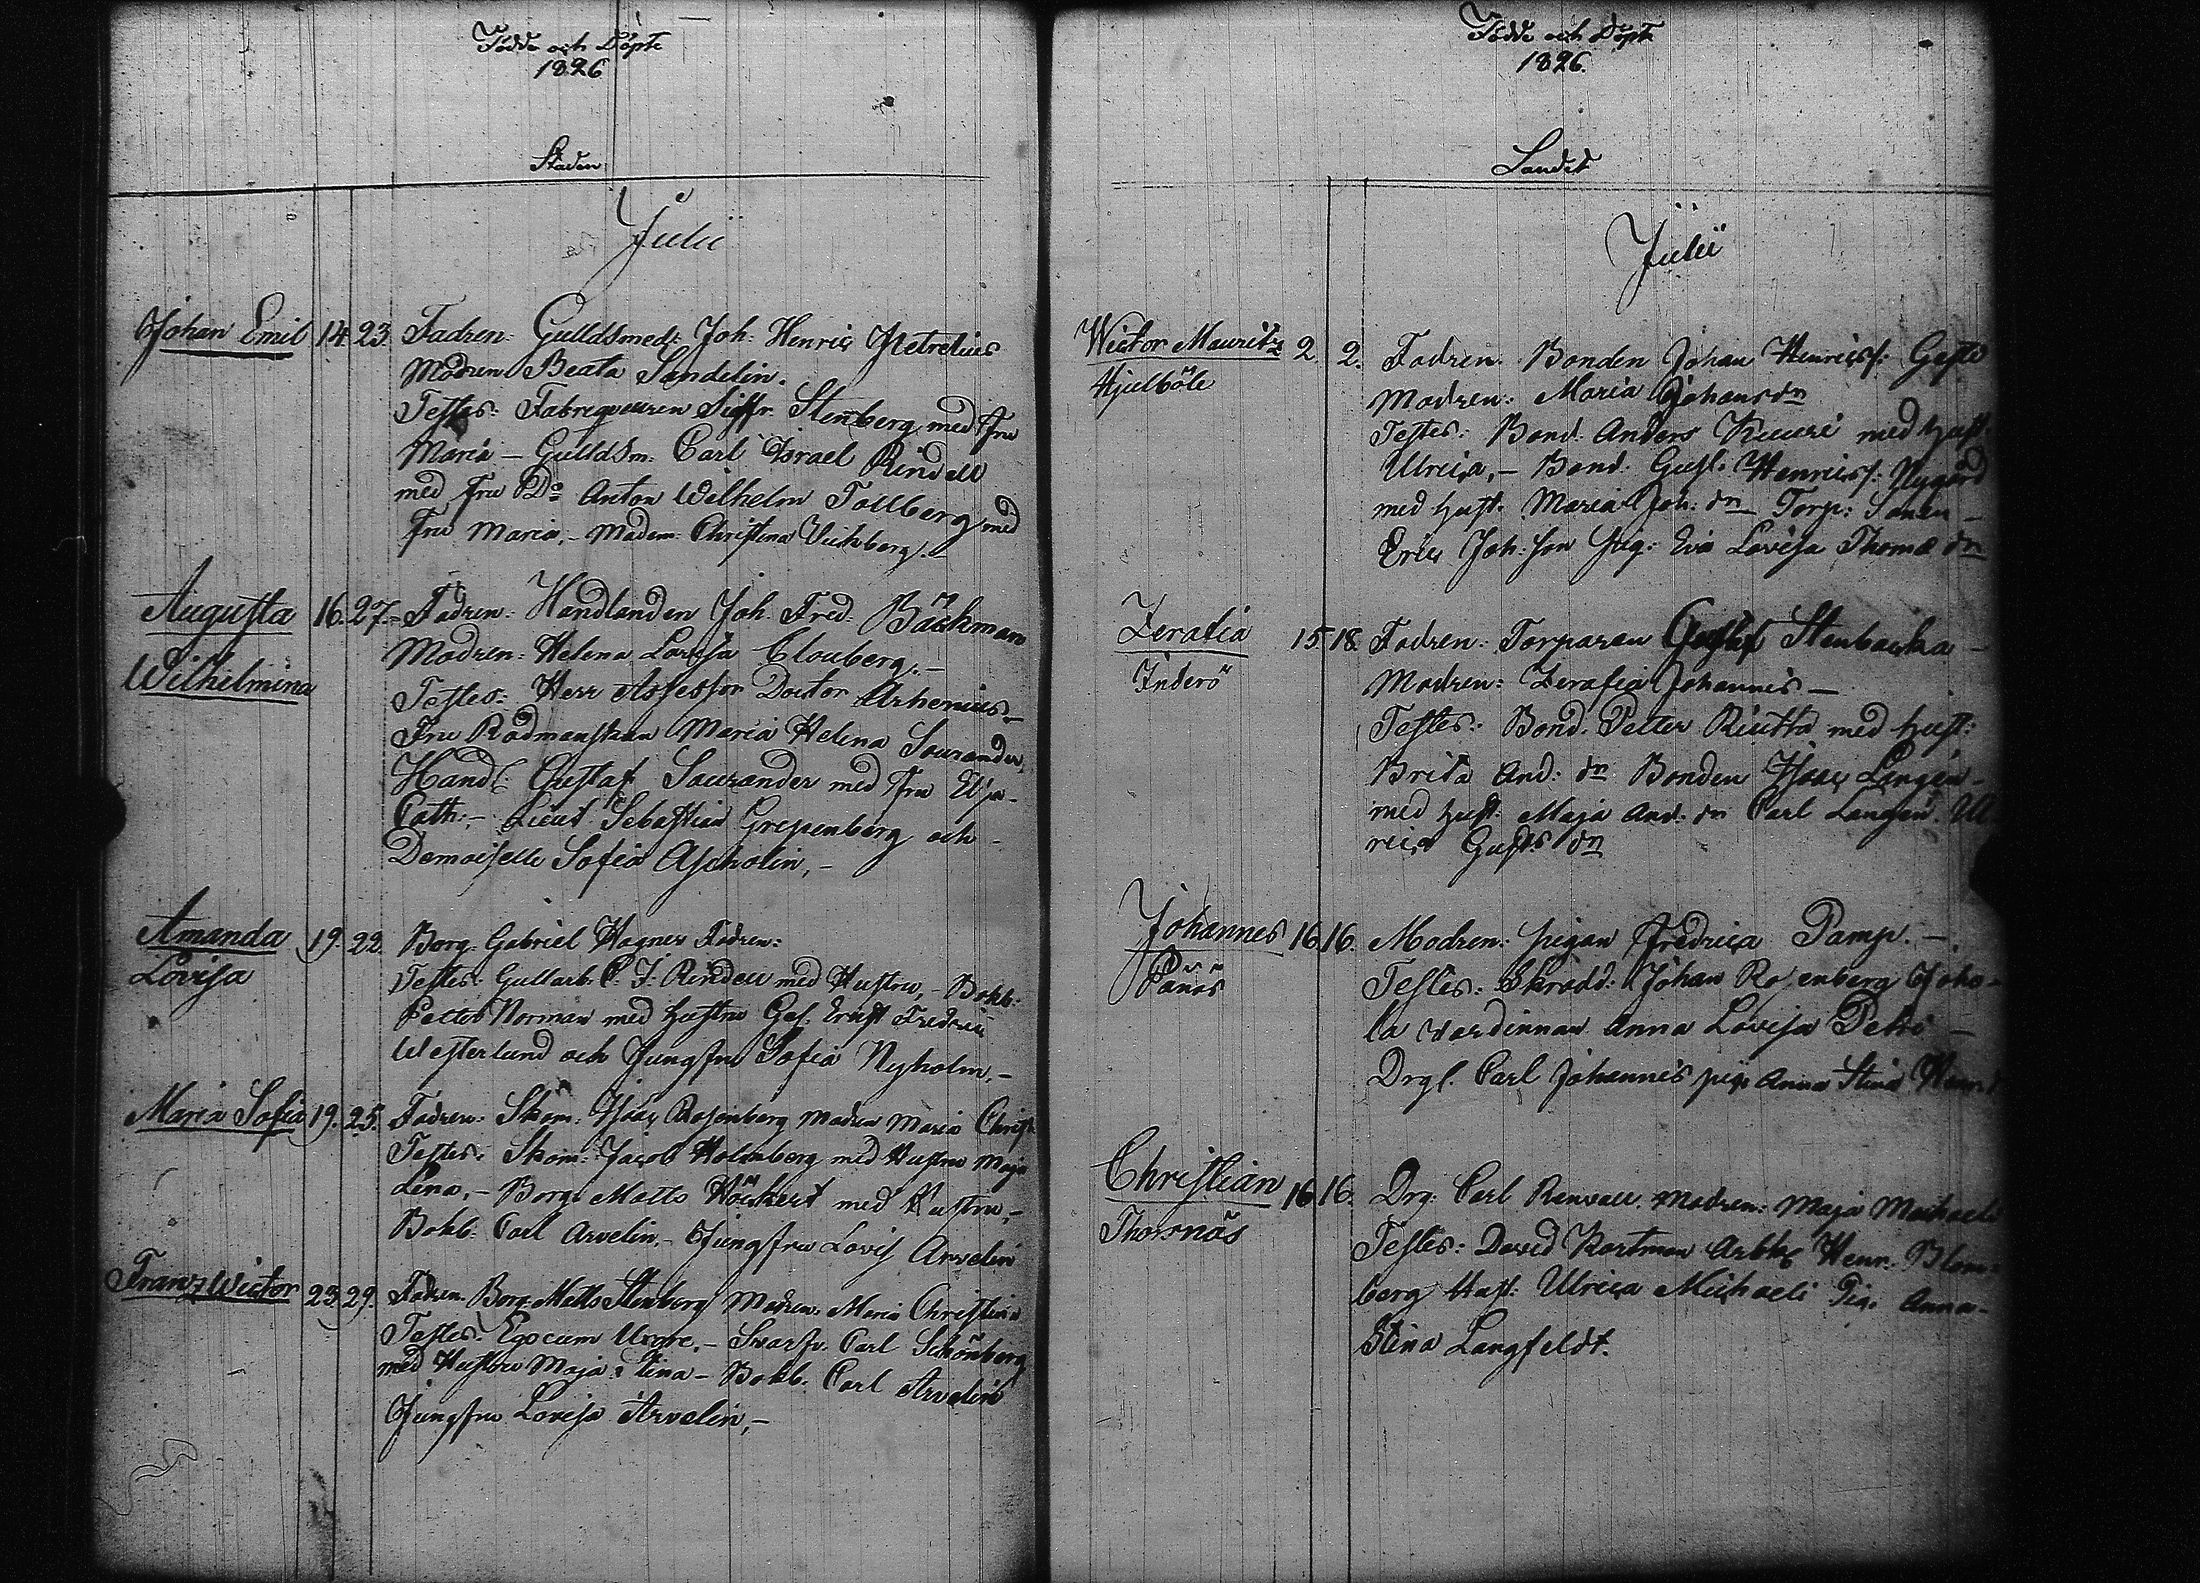 Födde och Döpte
1826
Staden
Julii
Johan Emil 14. 23. Fadren: Gulldsmed: Joh: Henric Petrelius
Modren Beata Sandelin.
Testes: Fabriqueuren Sigfr. Stenberg med Fru
Maria – Gulldsm: Carl Israel Rindell
med Fru Do Anton Wilhelm Tollberg med
Fru Maria, – Madem: Christina Vichberg. –
Augusta 16. 27. – Fadren: Handlanden Joh. Fred. Bäckman
Wilhelmina Modren: Helena Lovisa Clouberg. –
Testes: Herr Assessor Doctor Arhenius. –
Fru Rådmanskan Maria Helena Sourander,
Handl: Gustaf Sourander med Fru Elsa
Cath: – Lieut. Sebastian Gripenberg och
Demoiselle Sofia Ascholin, –
Amanda 19. 22. Borg. Gabriel Hagner Fadren:
Lovisa Testes: Gullarb. C. I. Rindell med Hustru, – Bokb:
Petter Norman med hustru Ges. Ernst Fredric
Westerlund och Jungfru Sofia Nyholm. –
Maria Sofia 19. 25. Fadren: Skom: Isac Rosenberg Modren Maria Christ:
Testes: Skom: Jacob Holmberg med Hustru Maja
Lena, – Borg: Matts Höckert med Hustru, –
Bokb: Carl Arvelin, – Jungfru Lovis Arvelin
Franz Wictor 23. 29. Fadren Borg. Matts Stenberg Modren: Maria Christina
Testes: Ego cum Uxore, – Svarfv. Carl Schönberg
med Hustru Maja Stina – Bokb. Carl Arvelin
Jungfru Lovisa Arvelin, –
Födde och Döpte
1826.
Landet
Julii
Wictor Mauritz 2. 2. Fadren. Bonden Johan Henrics: Geste
Hjulböle Modren: Maria Johansdn
Testes: Bond. Anders Kuuri med hust.
Ulrica, – Bond: Gust: Henrics: Nygård
med hust. Maria Joh: dn Torp: Sonen –
Eric Joh: son pig: Eva Lovisa Thomæ dn
Zerafia 15. 18. Fadren: Torparen Gustaf Stenbacka –
Inderö Modren: Zerafia Johannis –
Testes: Bond. Petter Riutta med hust:
Brita And: dn Bonden Isac Långén –
med hust: Maja And: dn Carl Långén. Ul
rica Gusts dn
Johannes 16. 16. Modren: pigan Fredrica Pamp. –
Pånäs Testes: Skrädd: Johan Rosenberg Joho-
la värdinnan Anna Lovisa Petri –
Drgl. Carl Johannis pig. Anna Stina Henr:
Christian 16. 16. Drg: Carl Renvall. Modren: Maja Michaeli
Thorsnäs Testes: David Kortman Arbk: Henr. Blom-
berg Hust: Ulrica Michaeli Pig. Anna-
Stina Langfeldt.